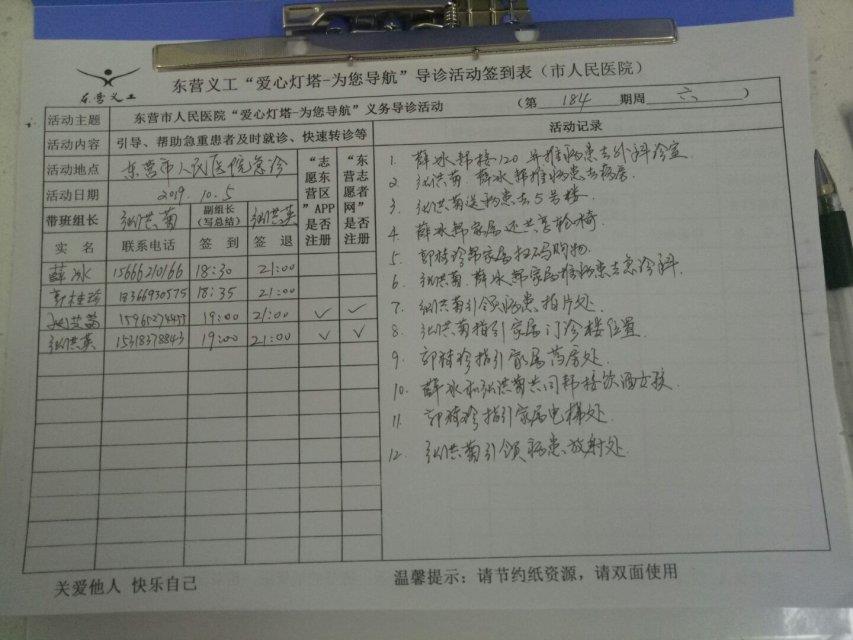 东营义工
东营义工“爱心灯塔-为您导航”导诊活动签到表（市人民医院）
活动主题 东营市人民医院“爱心灯塔-为您导航”义务导诊活动 （第 184 期周 六 ）
活动内容 引导、帮助急重患者及时就诊、快速转诊等 活动记录
活动地点 东营市人民医院急诊 “志愿东营区”APP是否注册 “东营志愿者网”是否注册
活动日期 2019.10.5
带班组长 张洪菊 副组长（写总结） 张洪英
实名 联系电话 签到 签退
薛冰 15666210166 18:30 21:00
郭桂珍 18366930575 18:35 21:00
15965274457 19:00 21:00 ✓ ✓
张洪英 15318378843 19:00 21:00 ✓ ✓
1. 薛冰帮接120并推病患去外科诊室
2. 张洪菊、薛冰帮推病患去病房
3. 张洪菊送病患去5号楼
4. 薛冰帮家属还共享轮椅
5. 郭桂珍帮家属扫码购物
6. 张洪菊、薛冰帮家属推病患去急诊科
7. 张洪菊引领病患拍片处
8. 张洪菊指引家属门诊楼位置
9. 郭桂珍指引家属药房处
10. 薛冰和张洪菊共同帮接饮酒女孩
11. 郭桂珍指引家属电梯处
12. 张洪菊引领病患放射处
关爱他人 快乐自己
温馨提示：请节约纸资源，请双面使用